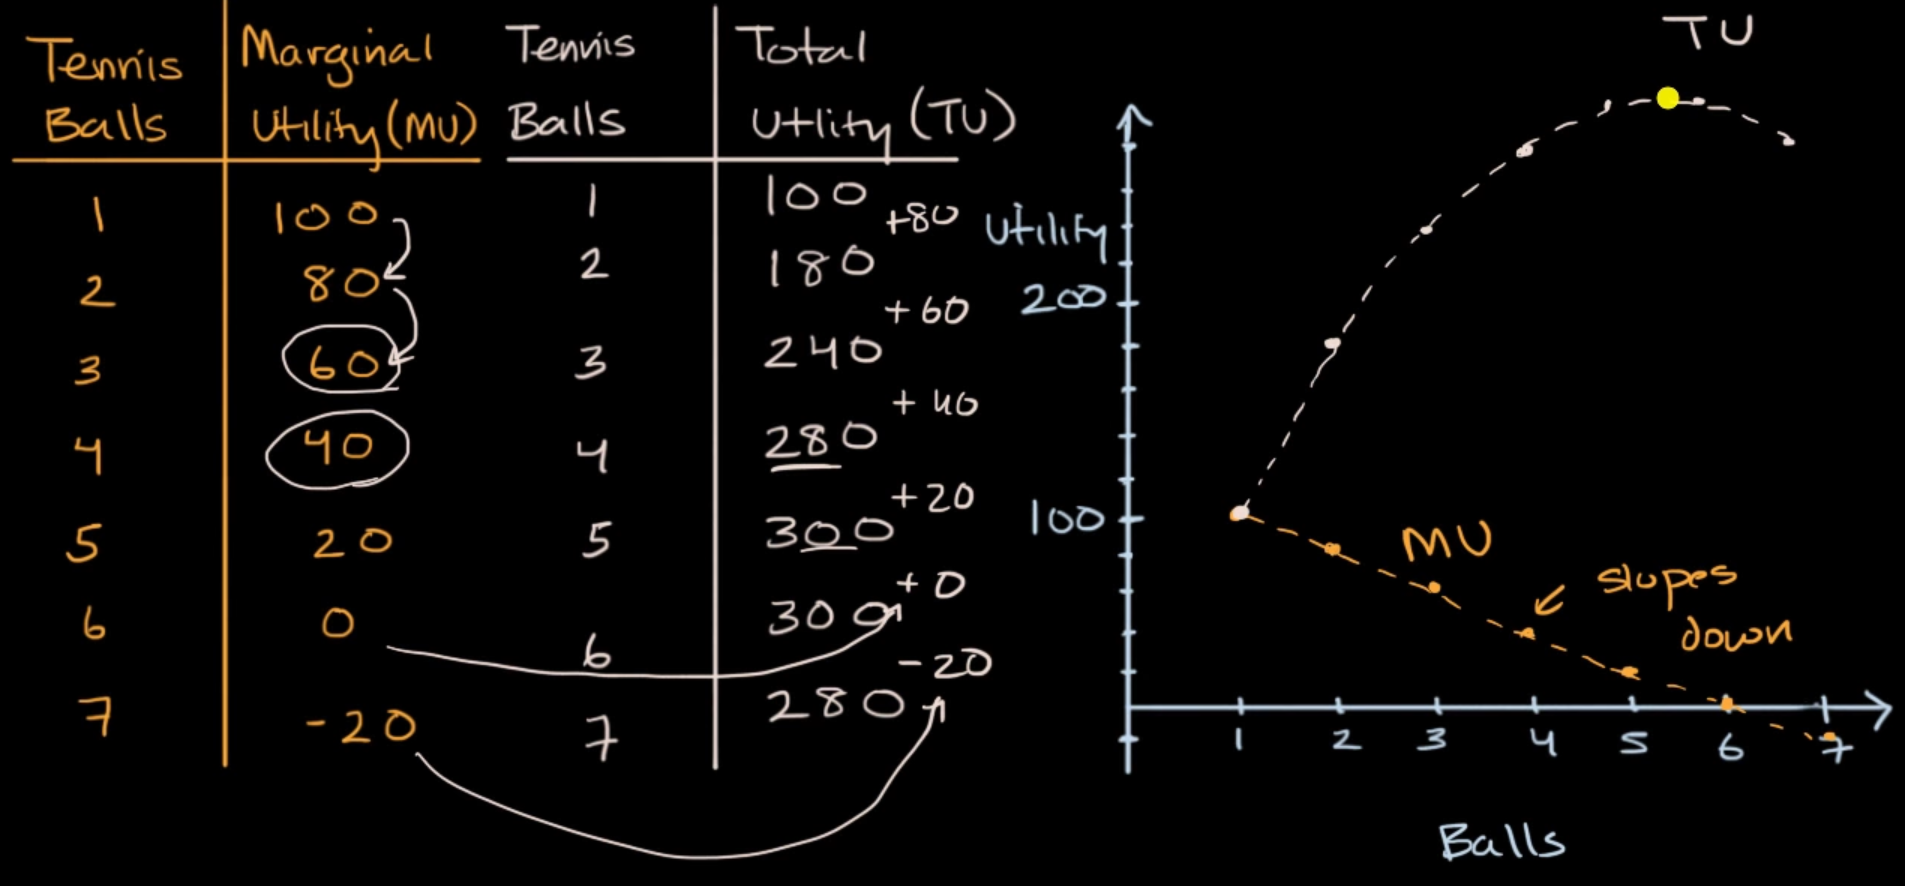 Tennis Balls
Marginal Utility (MU)
1 100
2 80
3 60
4 40
5 20
6 0
7 -20
Tennis Balls
Total Utlity (TU)
1 100
+80
2 180
+60
3 240
+40
4 280
+20
5 300
+0
6 300
-20
7 280
TU
Utility
200
100
MU
slopes
down
1 2 3 4 5 6 7
Balls